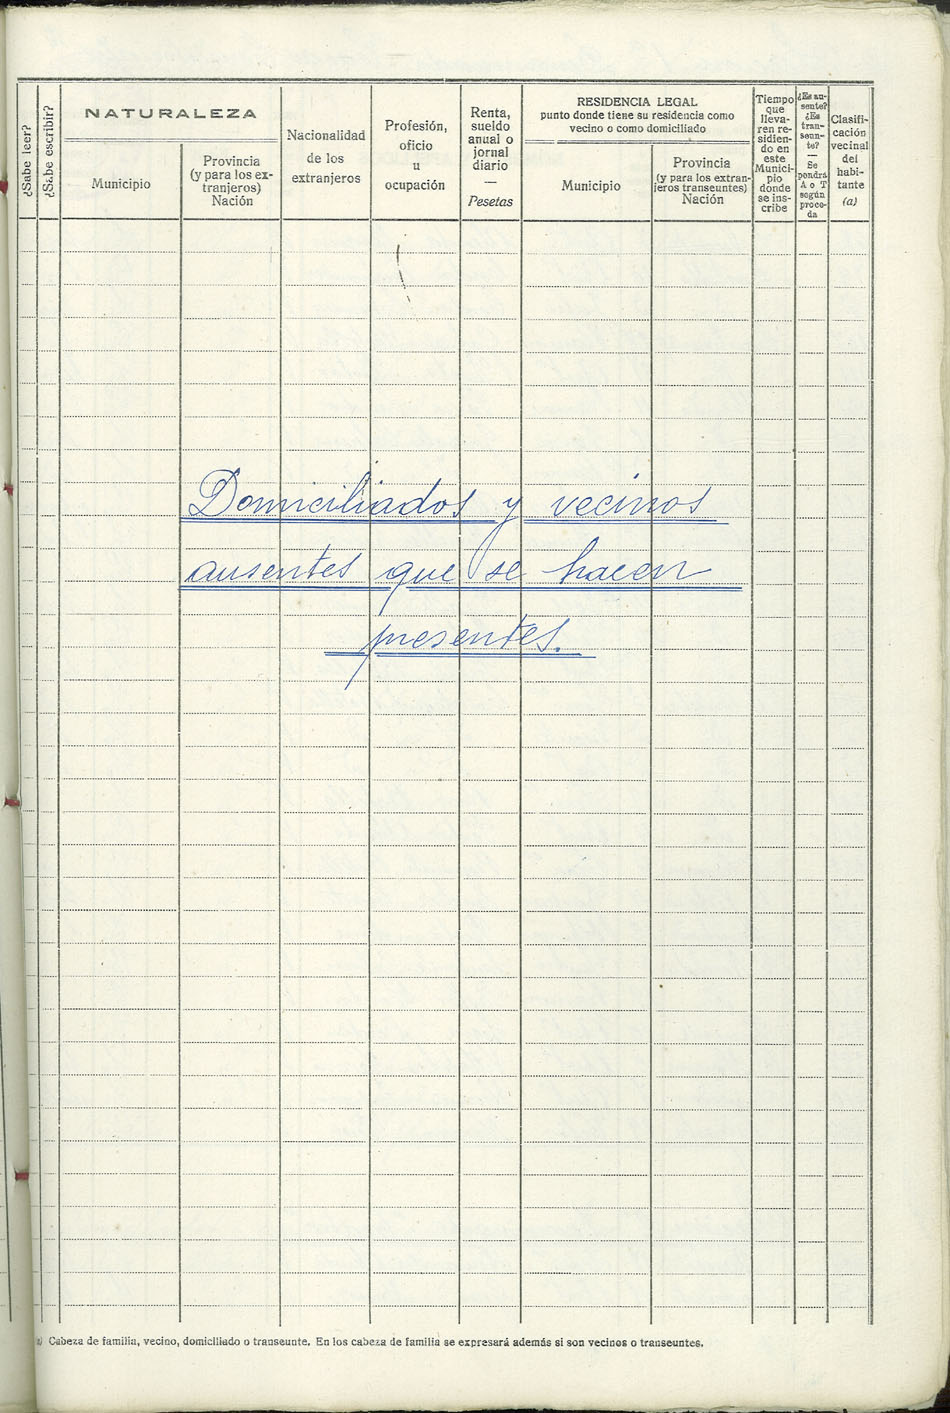 ¿Sabe leer?
¿Sabe escribir?
NATURALEZA
Municipio
Provincia
(y para los ex-
tranjeros)
Nación
Nacionalidad
de los
extranjeros
Profesión,
oficio
u
ocupación
Renta,
sueldo
anual o
jornal
diario
—
Pesetas
RESIDENCIA LEGAL
punto donde tiene su residencia como
vecino o como domiciliado
Municipio
Provincia
(y para los extran-
jeros transeuntes)
Nación
Tiempo
que
lleva-
ren re-
sidien-
do en
este
Munici-
pio
donde
se ins-
cribe
¿Es au-
sente?
¿Es
tran-
seun-
te?
—
Se
pondrá
A o T
según
proce-
da
Clasifi-
cación
vecinal
del
habi-
tante
(a)
Domiciliados y vecinos
ausentes que se hacen
presentes.
a) Cabeza de familia, vecino, domiciliado o transeunte. En los cabeza de familia se expresará además si son vecinos o transeuntes.